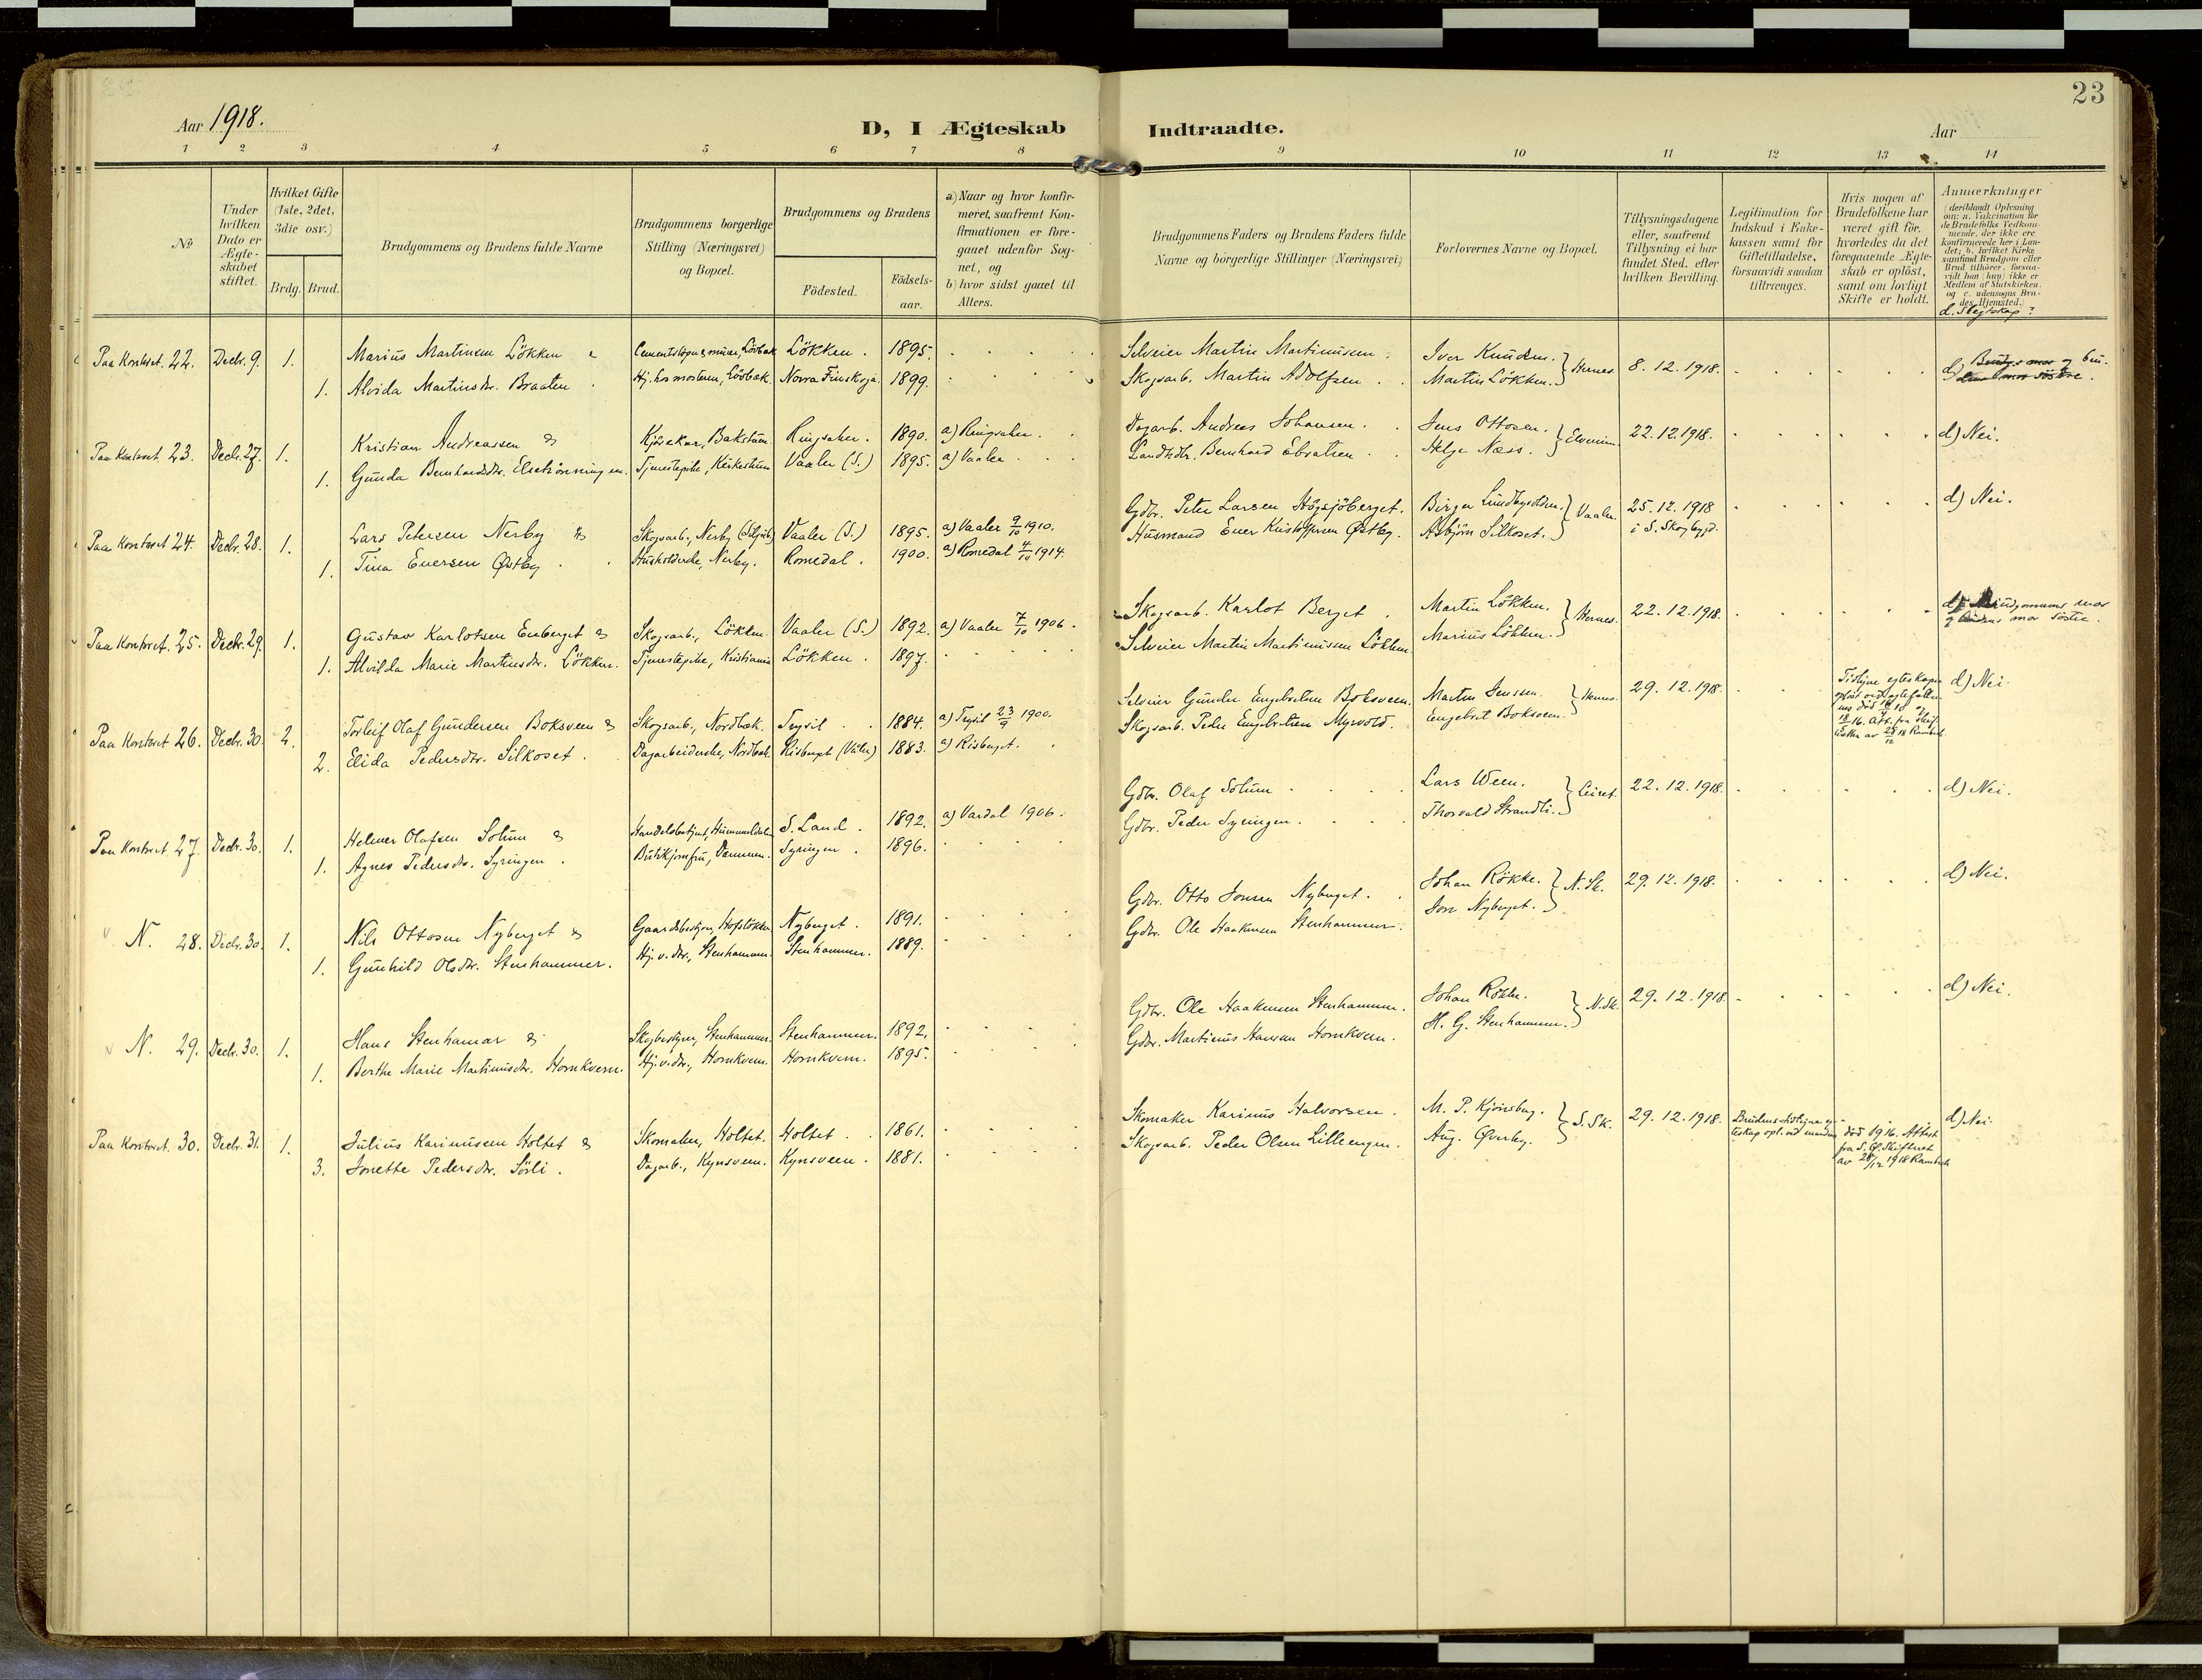 23
Aar 1918.
D, I Ægteskab Indtraadte.
Aar
1 2 3 4 5 6 7 8 9 10 11 12 13 14
No
Under hvilken Dato er Ægteskabet stiftet.
Hvilket Gifte (1ste, 2det, 3die osv.)
Brdg. Brud.
Brudgommens og Brudens fulde Navne
Brudgommens borgerlige Stilling (Næringsvei) og Bopæl.
Brudgommens og Brudens
Födested.
Födsels-aar.
a) Naar og hvor konfirmeret, saafremt Konfirmationen er foregaaet udenfor Sognet, og
b) hvor sidst gaaet til Alters.
Brudgommens Faders og Brudens Faders fulde Navne og borgerlige Stillinger (Næringsvei)
Forlovernes Navne og Bopæl.
Tillysningsdagene eller, saafremt Tillysning ei har fundet Sted, efter hvilken Bevilling.
Legitimation for Indskud i Enkekassen samt for Giftetilladelse, forsaavidt saadan tiltrænges.
Hvis nogen af Brudefolkene har været gift før, hvorledes da det foregaaende Ægteskab er oplöst, samt om lovligt Skifte er holdt.
Anmærkninger (deriblandt Oplysning om: a. Vakcination for de Brudefolks Vedkommende, der ikke ere konfirmerede her i Landet; b. hvilket Kirkesamfund Brudgom eller Brud tilhører, forsaavidt han (hun) ikke er Medlem af Statskirken, og c. udensogns Brudes Hjemsted.)
d. Slegtskap?
Paa Kontoret. 22. Decbr. 9. 1. Marius Martinsen Lökken & Lökken. 1895. Selveier Martin Martinussen. Iver Knudsen. Hernes. 8.12.1918. d) Brudg.s mor og bru-
1. Alvida Martinsdr. Braaten Hj. hos mosteren, Lövbak. Norra Finskoga 1899. Skogsarb. Martin Adolfsen. Martin Lökken. dens mor söstre.
Paa Kontoret. 23. Decbr. 27. 1. Kristian Andreassen & Bakstuen. Ringsaker. 1890. a) Ringsaker. Dagarb. Andreas Johansen. Jens Ottosen. Elverum. 22.12.1918. d) Nei.
1. Gunda Bernhardsdr. Tjenestepike, Kirkestuen Vaaler (S.) 1895. a) Vaaler. Bernhard Helge Næss.
Paa Kontoret 24. Decbr. 28. 1. Lars Petersen Nerby & Skogsarb., Nerby Vaaler (S.) 1895. a) Vaaler 9/10 1910. Gdbr. Peter Larsen Högsjöberget. Birger Vaaler. 25.12.1918 i S. Skogbygd. d) Nei.
1. Tina Evensen Østby. Husholderske, Nerby. Romedal. 1900. a) Romedal 4/10 1914. Husmand Even Kristoffersen Østby. Asbjörn Silkoset.
Paa Kontoret. 25. Decbr. 29. 1. Gustav Karlotsen Enberget & Skogsarb., Lökken. Vaaler (S.) 1892. a) Vaaler 7/10 1906. Skogsarb. Karlot Berget. Martin Lökken. Hernes. 22.12.1918. d) Brudgommens mor
1. Alvilda Marie Martinsdr. Lökken. Tjenestepike, Kristiania Lökken. 1897. Selveier Martin Martinussen Lökken. Marius Lökken. og brudens mor söstre.
Paa Kontoret 26. Decbr. 30. 2. Torleif Olaf Gundersen Boksveen & Skogsarb., Nordbak. Trysil. 1884. a) Trysil 23/9 1900. Selveier Gunder Engebretsen Boksveen. Martin Jenssen. Hernes. 29.12.1918. d) Nei
2. Elida Pedersdr. Silkoset. Dagarbeiderske, Nordbak Risberget (Våler) 1883. a) Risberget. Skogsarb. Peder Engebretsen Myrvold. Engebret Boksveen.
Paa Kontoret. 27. Decbr. 30. 1. Helmer Olafsen Solum & S. Land. 1892. a) Vardal 1906. Gdbr. Olaf Solum. Lars Ween. Leiret. 22.12.1918. d) Nei.
1. Agnes Pedersdr. Syringen. Syringen. 1896. Gdbr. Peder Syringen. Thorvald Strandli.
N. 28. Decbr. 30. 1. Nils Ottosen Nyberget & Gaardsbestyrer, Hofslökken Nyberget. 1891. Gdbr. Otto Jonsen Nyberget. Johan Rökke. N. Sk. 29.12.1918. d) Nei.
1. Gunhild Olsdr. Stenhammer. Hj. v. dr., Stenhammer. Stenhammer. 1889. Gdbr. Ole Haakensen Stenhammer. Jon Nyberget.
N. 29. Decbr. 30. 1. Hans Stenhamar & Skogbestyrer, Stenhammer. Stenhammer. 1892. Gdbr. Ole Haakensen Stenhammer. Johan Rökke. N. Sk. 29.12.1918. d) Nei.
1. Berthe Marie Martinusdr. Hornkveen. Hj. v. dr., Hornkveen. Hornkveen. 1895. Gdbr. Martinus Hansen Hornkveen. H. G. Stenhammer.
Paa Kontoret. 30. Decbr. 31. 1. Julius Karinussen Holtet & Skomaker, Holtet. Holtet. 1861. Skomaker Karinus Halvorsen. M. P. Kjönsberg. S. Sk. 29.12.1918. d) Nei.
3. Jonette Pedersdr. Sörli. Dagarb., Kynsveen. Kynsveen. 1881. Skogsarb. Peder Olsen Lilleengen. Aug. Øverby. död 1916. Attest fra S. Ø. Skifteret av 28/12 1918